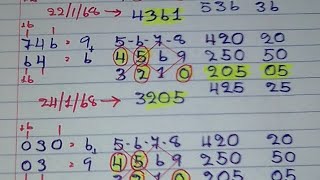 22/1/68 → 4361 53b 3b
1b 1
746 = 9+ 5-6-7-8 420 20
64 = b 4 5 6 9 250 50
3 2 1 0 205 05
24/1/68 → 3205 425 25
1b 1
030 = b+ 5-6-7-8 420 20
03 = 9 4 5 6 9 250 50